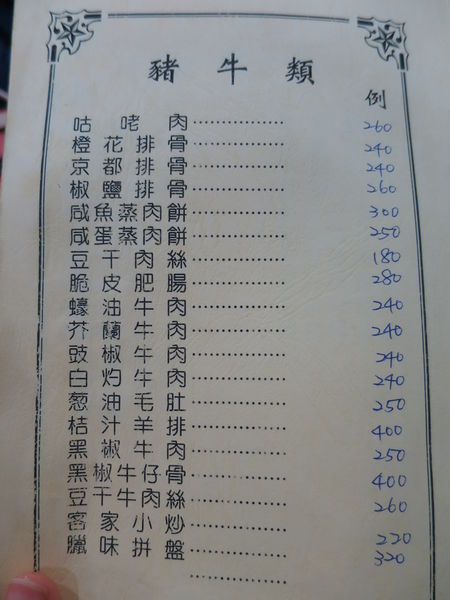 豬牛類
例
咕咾肉 260
橙花排骨 240
京都排骨 240
椒鹽排骨 260
咸魚蒸肉餅 300
咸蛋蒸肉餅 250
豆干肉絲 180
脆皮肥腸 280
蠔油牛肉 240
芥蘭牛肉 240
豉椒牛肉 240
白灼牛肉 240
葱油毛肚 250
桔汁羊排 400
黑椒牛肉 250
黑椒牛仔骨 400
豆干牛肉絲 260
客家小炒 220
臘味拼盤 320